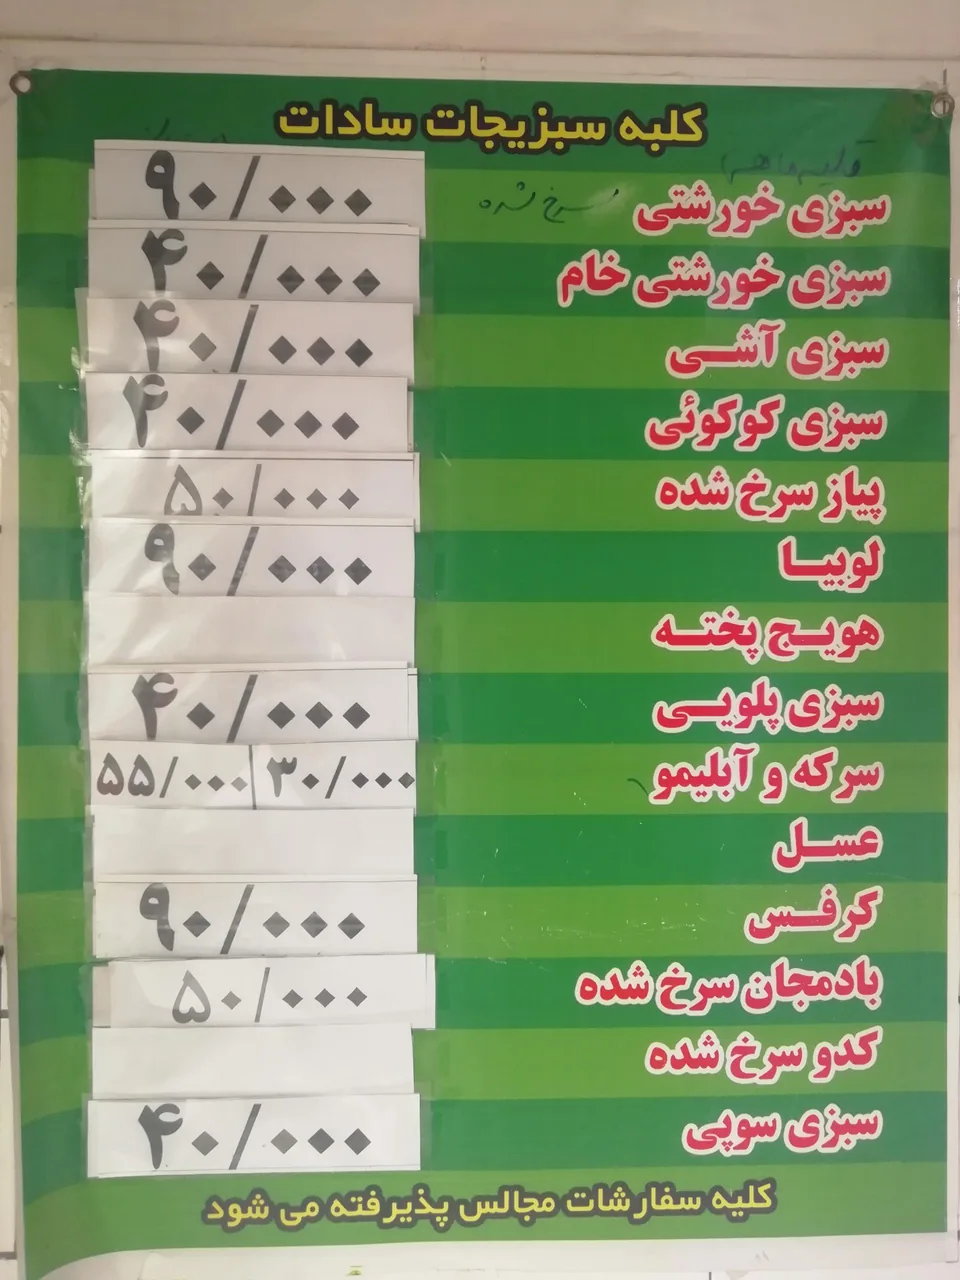 کلبه سبزیجات سادات
قلیه ماهی
سبزی خورشتی سرخ شده ۹۰/۰۰۰
سبزی خورشتی خام ۴۰/۰۰۰
سبزی آشی ۴۰/۰۰۰
سبزی کوکوئی ۴۰/۰۰۰
پیاز سرخ شده ۵۰/۰۰۰
لوبیا ۹۰/۰۰۰
هویج پخته
سبزی پلویی ۴۰/۰۰۰
سرکه و آبلیمو ۳۰/۰۰۰ ۵۵/۰۰۰
عسل
کرفس ۹۰/۰۰۰
بادمجان سرخ شده ۵۰/۰۰۰
کدو سرخ شده
سبزی سوپی ۴۰/۰۰۰
کلیه سفارشات مجالس پذیرفته می شود